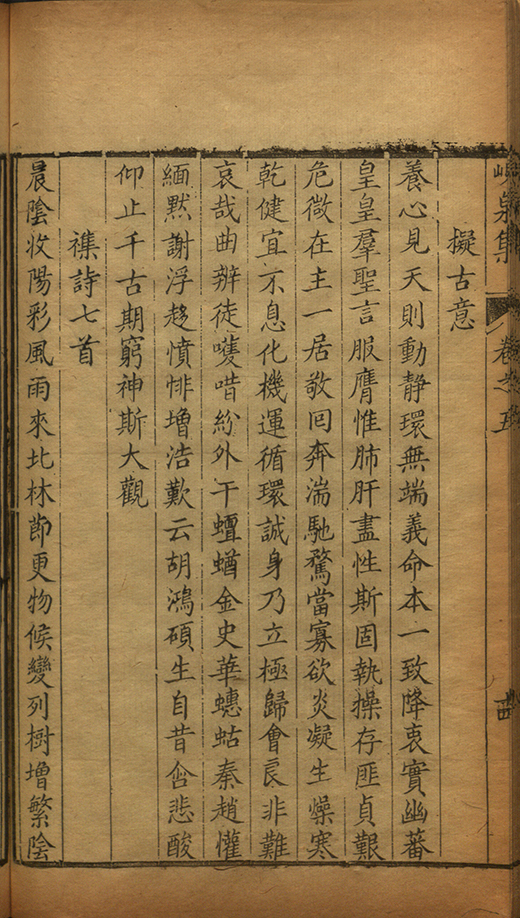 峴泉集 卷之五 十四
擬古意
養心見天則動靜環無端義命本一致降衷實幽蕃
皇皇羣聖言服膺惟肺肝盡性斯固執操存匪貞艱
危微在主一居敬囘奔湍馳騖當寡欲炎凝生燥寒
乾健宜不息化機運循環誠身乃立極歸會良非難
哀哉曲辨徒嘐唶紛外干蟺蝤金史華蟪蛄秦趙懽
緬默謝浮趍憤悱増浩歎云胡鴻碩生自昔含悲酸
仰止千古期窮神斯大觀
襍詩七首
晨陰收陽彩風雨來北林節更物候變列樹増繁陰